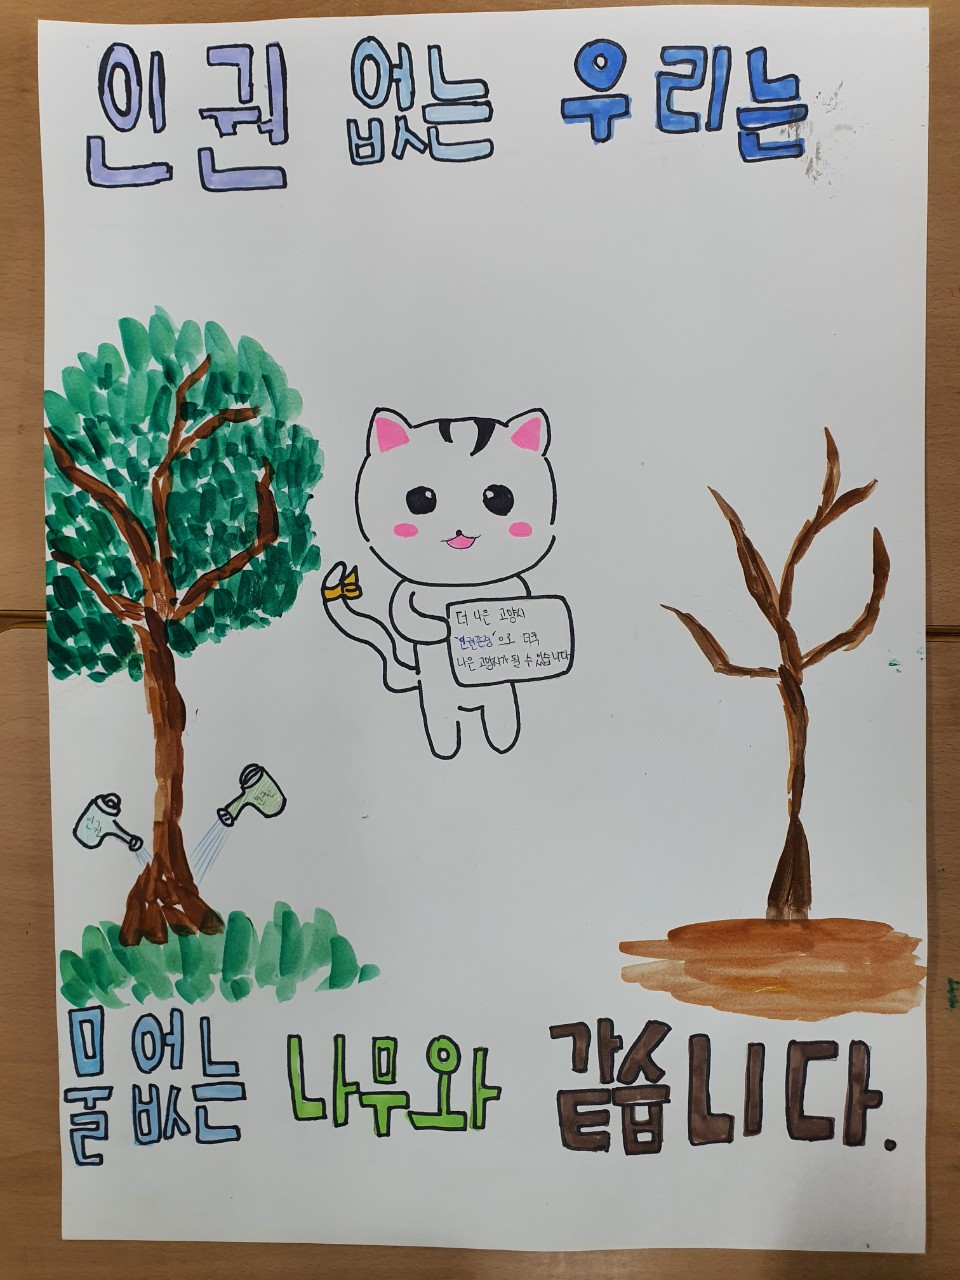 인권 없는 우리는
더 나은 고양시
'인권존중'으로 더욱
나은 고양시가 될 수 있습니다
인권
인권
물 없는 나무와 같습니다.